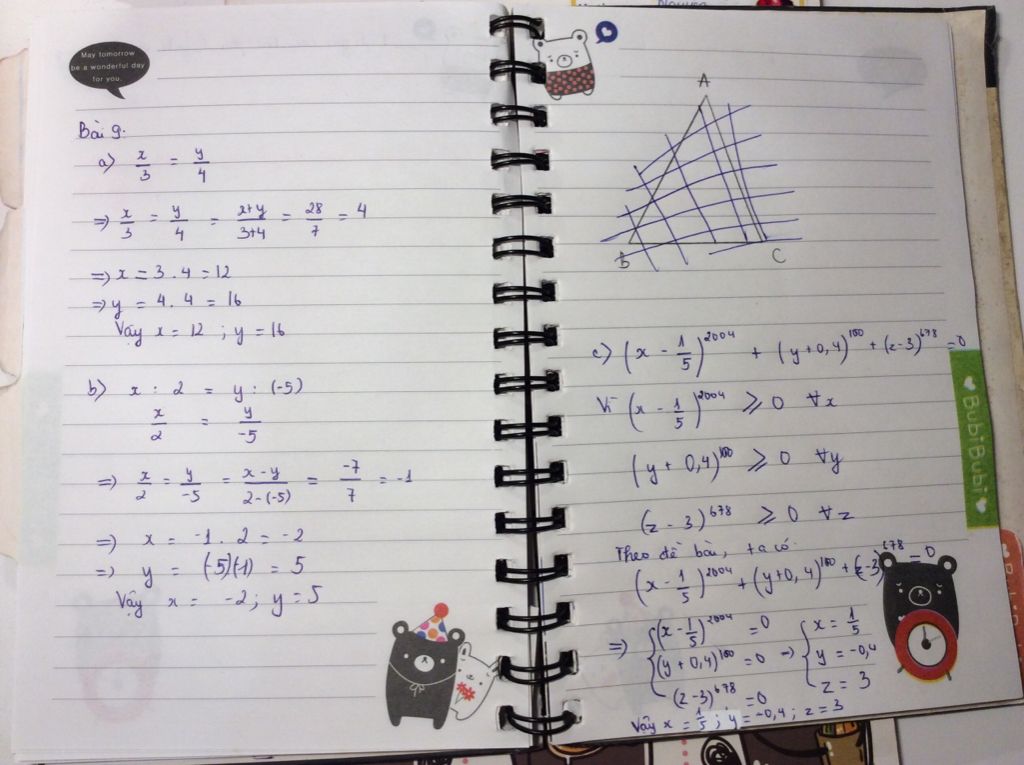 May tomorrow
be a wonderful day
for you.
Bài 9.
a) x/3 = y/4
=> x/3 = y/4 = (x+y)/(3+4) = 28/7 = 4
=> x = 3 . 4 = 12
=> y = 4 . 4 = 16
Vậy x = 12 ; y = 16
b) x : 2 = y : (-5)
x/2 = y/-5
=> x/2 = y/-5 = (x-y)/(2-(-5)) = -7/7 = -1
=> x = -1 . 2 = -2
=> y = (-5)(-1) = 5
Vậy x = -2 ; y = 5
A
B C
c) (x - 1/5)^2004 + (y+0,4)^100 + (z-3)^678 = 0
Vì (x - 1/5)^2004 ⩾ 0 ∀x
(y + 0,4)^100 ⩾ 0 ∀y
(z - 3)^678 ⩾ 0 ∀z
Theo đề bài, ta có
(x - 1/5)^2004 + (y+0,4)^100 + (z-3)^678 = 0
=> { (x - 1/5)^2004 = 0 { x = 1/5
(y+0,4)^100 = 0 => y = -0,4
(z-3)^678 = 0 z = 3
Vậy x = 1/5 ; y = -0,4 ; z = 3
BubiBubi